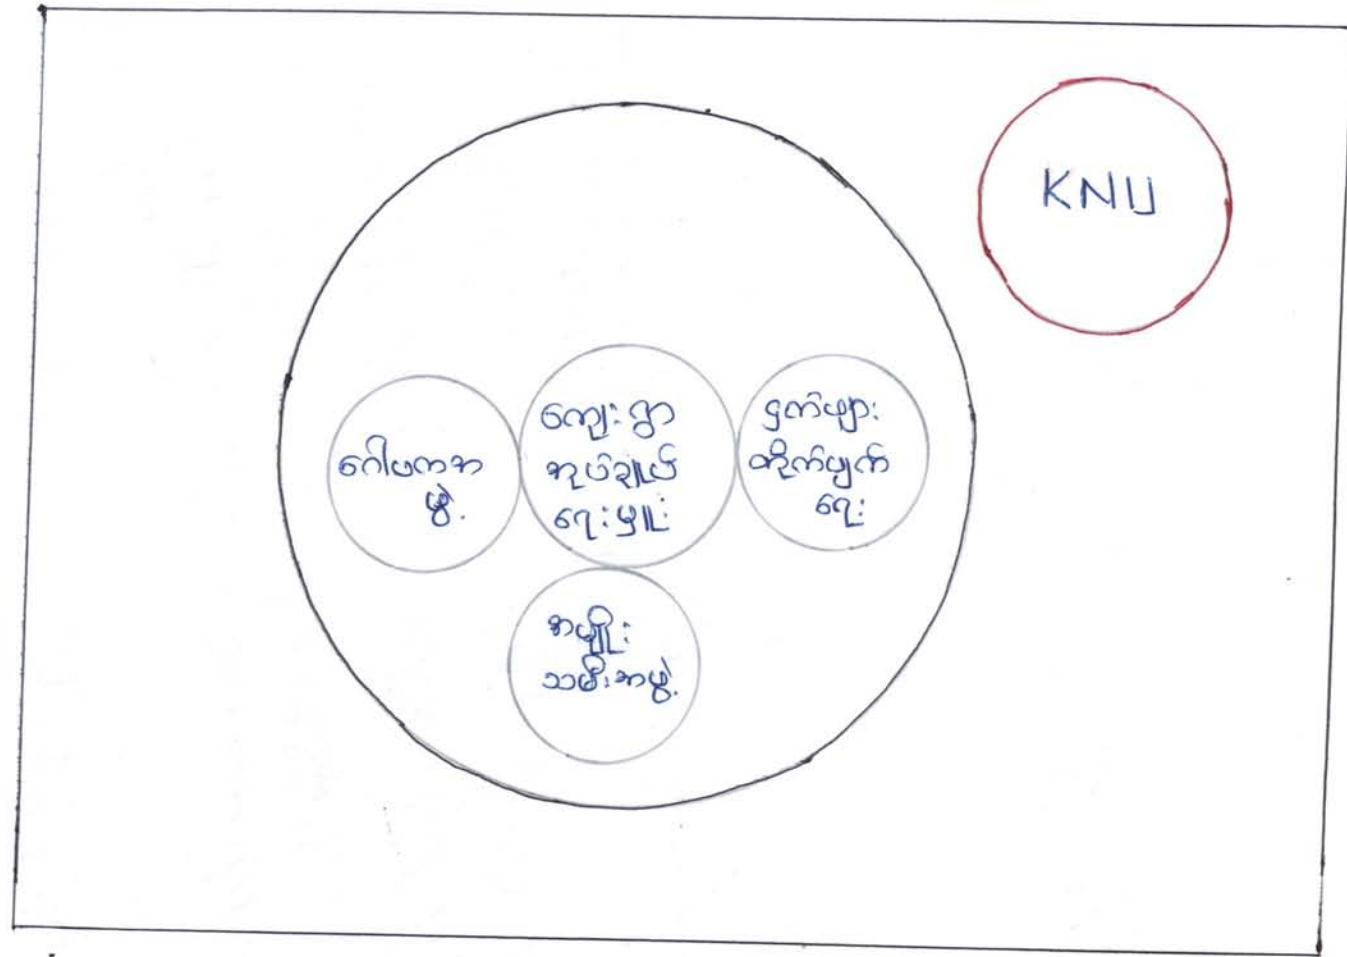 KNU
ဂေါပကအ
ဖွဲ့
ကျေးရွာ
အုပ်ချုပ်
ရေးမှူး
ငှက်ဖျား
တိုက်ဖျက်
ရေး
အမျိုး
သမီးအဖွဲ့